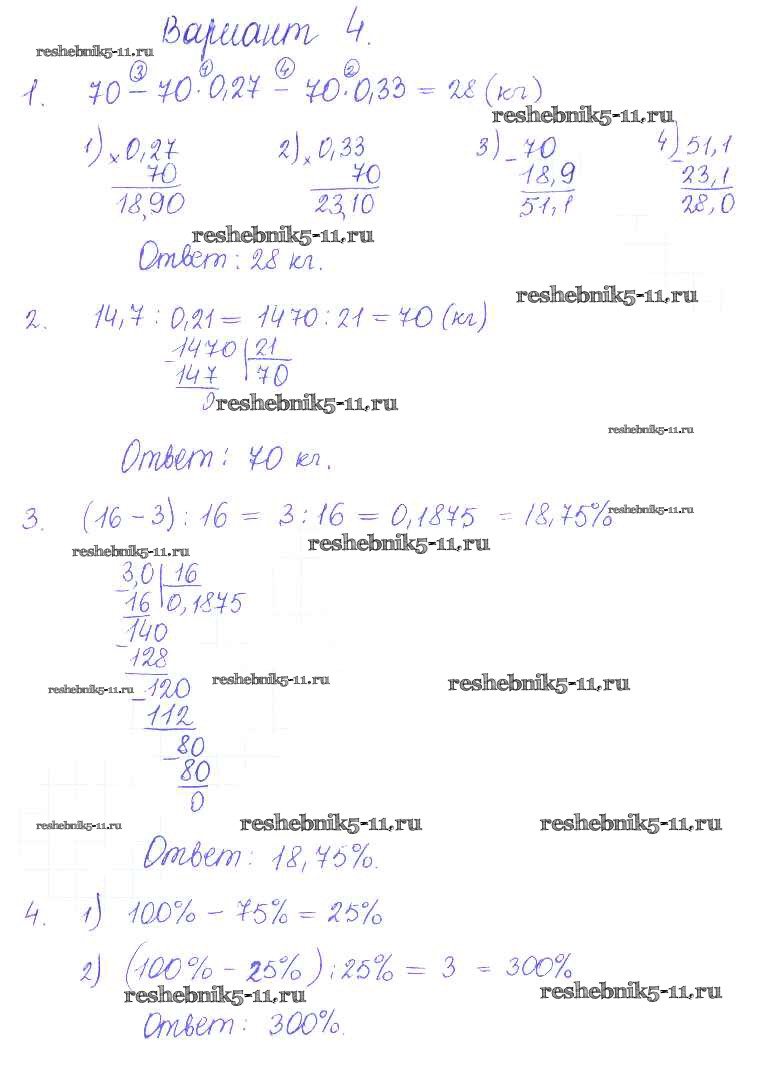 Вариант 4.
reshebnik5-11.ru
1. 70 - 70·0,27 - 70·0,33 = 28 (кг)
③ ① ④ ②
reshebnik5-11.ru
1) × 0,27 2) × 0,33 3) - 70 4) - 51,1
70 70 18,9 23,1
18,90 23,10 51,1 28,0
reshebnik5-11.ru
Ответ: 28 кг.
reshebnik5-11.ru
2. 14,7 : 0,21 = 1470 : 21 = 70 (кг)
- 1470 | 21
147 | 70
0
reshebnik5-11.ru
reshebnik5-11.ru
Ответ: 70 кг.
3. (16 - 3) : 16 = 3 : 16 = 0,1875 = 18,75%
reshebnik5-11.ru
reshebnik5-11.ru
reshebnik5-11.ru
3,0 | 16
- 16 | 0,1875
140
- 128
reshebnik5-11.ru
reshebnik5-11.ru
reshebnik5-11.ru
- 120
112
80
- 80
0
reshebnik5-11.ru
reshebnik5-11.ru
reshebnik5-11.ru
Ответ: 18,75%.
4. 1) 100% - 75% = 25%
2) (100% - 25%) : 25% = 3 = 300%
reshebnik5-11.ru
reshebnik5-11.ru
Ответ: 300%.